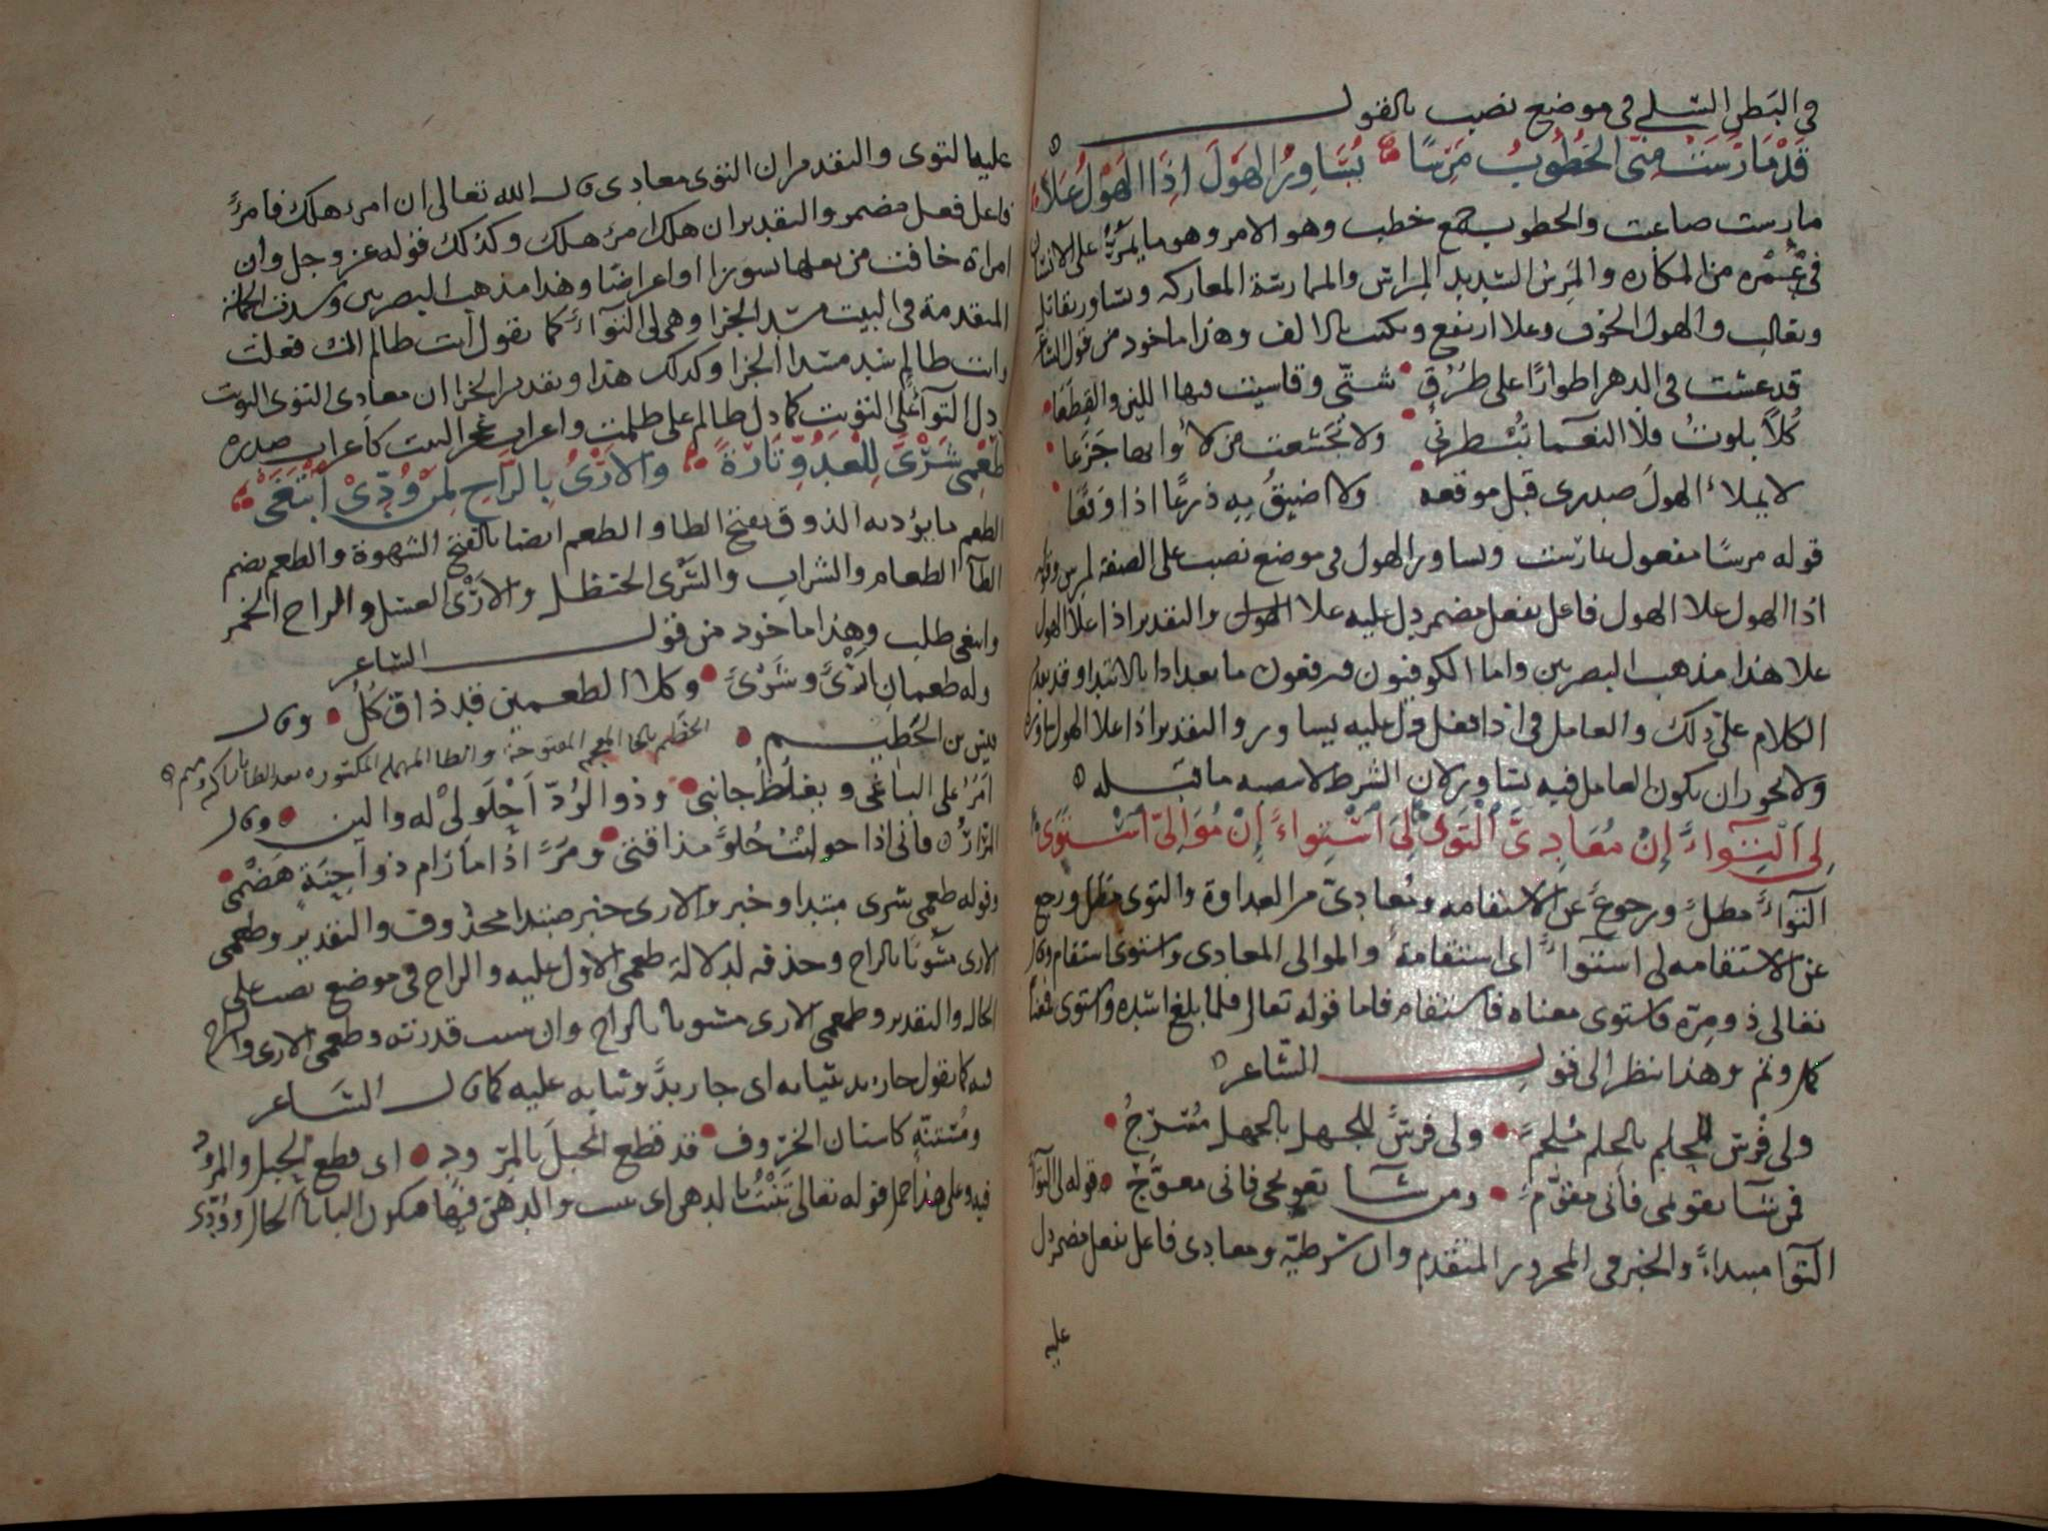 في البَطر التيلے في موضع نصب بالقول
قَدْ مَارَسَتْ مِنّى الخُطُوبُ مَرِسًا يُسَاوِرُ الهَوْلَ اِذَا الهَوْلُ عَلَا
مارست صاعبت والخطوب جمع خطب وهو الامر وهو ما يمرّ على الانسان
في عُمْره من المكاره والمَرِس الشديد المِراس والممارسَة المعاركه وتساور تقاتل
وتغالب والهول الخوف وعلا ارتفع ويكتب بالالف وهذا ماخوذ من قول الشاعر
قد عشت في الدهر اطوارًا على طُرُقٍ شتّى وقاسيت فيها اللين والقِطَعَا
كُلاً بلوتُ فلا النعما تُبْطرنى ولا تخشعت من لأوايها جَزَعَا
لا يملاُ الهولَ صدرى قبل موقعه ولا اضيقُ بِهِ ذرعًا اذا وَقَعَا
قوله مرسًا مفعول مارست ويساور الهول في موضع نصب على الصفة لمرس وقوله
اذا الهول علا الهول فاعل بفعل مضمر دل عليه علا الهول والتقدير اذا علا الهول
علا هذا مذهب البصريين واما الكوفيون فيرفعون ما بعد اذا بالابتدا وقد تقدم
الكلام على ذلك والعامل في اذا فعل دل عليه يساور والتقدير اذا علا الهول
ولا يجوز ان يكون العامل فيه يساور لان الشرط لا ينصبه ما قبله
لِىَ الْتِوَاءٌ اِنْ مُعَادِىَّ الْتَوَى لِىَ اسْتِوَاءٌ اِنْ مُوَالِىَّ اسْتَوَى
التواءٌ مطلٌ ورجوعٌ عن الاستقامه ومُعادىّ من العداوة والتوى مطل ورجع
عن الاستقامه لى استواءٌ اى استقامة والموالى المعادى واستوى استقام وقال
تعالى ذو مِرّه فاستوى معناه فاستقام فاما قوله تعالى فلما بلغ اشده واستوى فمعناه
كمل وتم وهذا ينظر الى قول الشاعر
ولى فرسٌ للحلم بالحلم مُلجمٌ ولى فرسٌ للجهل بالجهل مُسَرّجُ
فمن شآ تقويمى فانى مقوّمٌ ومن شآ تعويجى فانى معوّجُ قوله لى التوآ
التوآ مبتداءٌ والخبر في المجرور المتقدم وان شرطيّه ومعادى فاعل بفعل مضمر دل
عليه
عليه التوى والتقدير ان التوى معادى قال الله تعالى ان امرؤ هلك فامرؤٌ
فاعل فعل مضمر والتقدير ان هلك امرؤ هلك وكذلك قوله عز وجل وان
امراة خافت من بعلها نشوزا او اعراضًا وهذا مذهب البصريين وسدت الجملة
المتقدمة في البيت مسد الجزا وهى لى التوآءٌ كما يقول انت ظالم ان فعلت
وانت ظالم سد مسد الجزا وكذلك هذا وتقدير الجزا ان معادى التوى التويت
دل التوآ على التويت كما دل ظالم على ظلمت واعراب عجز البيت كاعراب صدره
طَعْمِى شَرْىٌ لِلْعَدُوِّ تَارَةً وَالْاَرْىُ بِالرَّاحِ لِمَنْ وُدِّىْ ابْتَغَى
الطعم ما يؤديه الذوق بفتح الطا والطعم ايضا بالفتح الشهوة والطعم بضم
الطآ الطعام والشراب والشرْى الحنظل والارْى العسل والراح الخمر
وابتغى طلب وهذا ماخوذ من قول الشاعر
وله طعمان اَرْىٌ وشَرْىٌ وكلا الطعمين قد ذاق كُلُ وقال
قيس بن الخَطيم الخَطيم بالخا المعجم المفتوحة والطا المهمله المكسوره بعد الطا يا ساكنه وميم
اَمَرُّ على الباغى ويغلُظُ جانبى وذو الوُدّ اَحْلَوْلِىْ له والين وقال
فانى اذا حولتْ حُلوٌ مذاقتى ومُرٌّ اذا ما رَام ذو احِنَةٍ هَضْمى
وقوله طعمى شرى مبتدا وخبر والارى خبر مبتدا محذوف والتقدير وطعمى
الارى مشوبًا بالراح وحذفه لدلالة طعمى الاول عليه والراح في موضع نصب على
الحال والتقدير وطعمى الارى مشوبا بالراح وان سيت قدرته وطعمى الارى والراح
فيه كما يقول جا زيد بثيابه اى جا زيدٌ وثيابه عليه كما قال الشاعر
ومُسْتَنّةٍ كاستنان الخروف قد قطع الحبلَ بالمِرْوَدِ اى قطع الحبل والمرود
فيه وعلى هذا حمل قوله تعالى تَنْبُتُ بالدهن اى تنبت والدهن فيها فيكون البا للحال ووُدّى